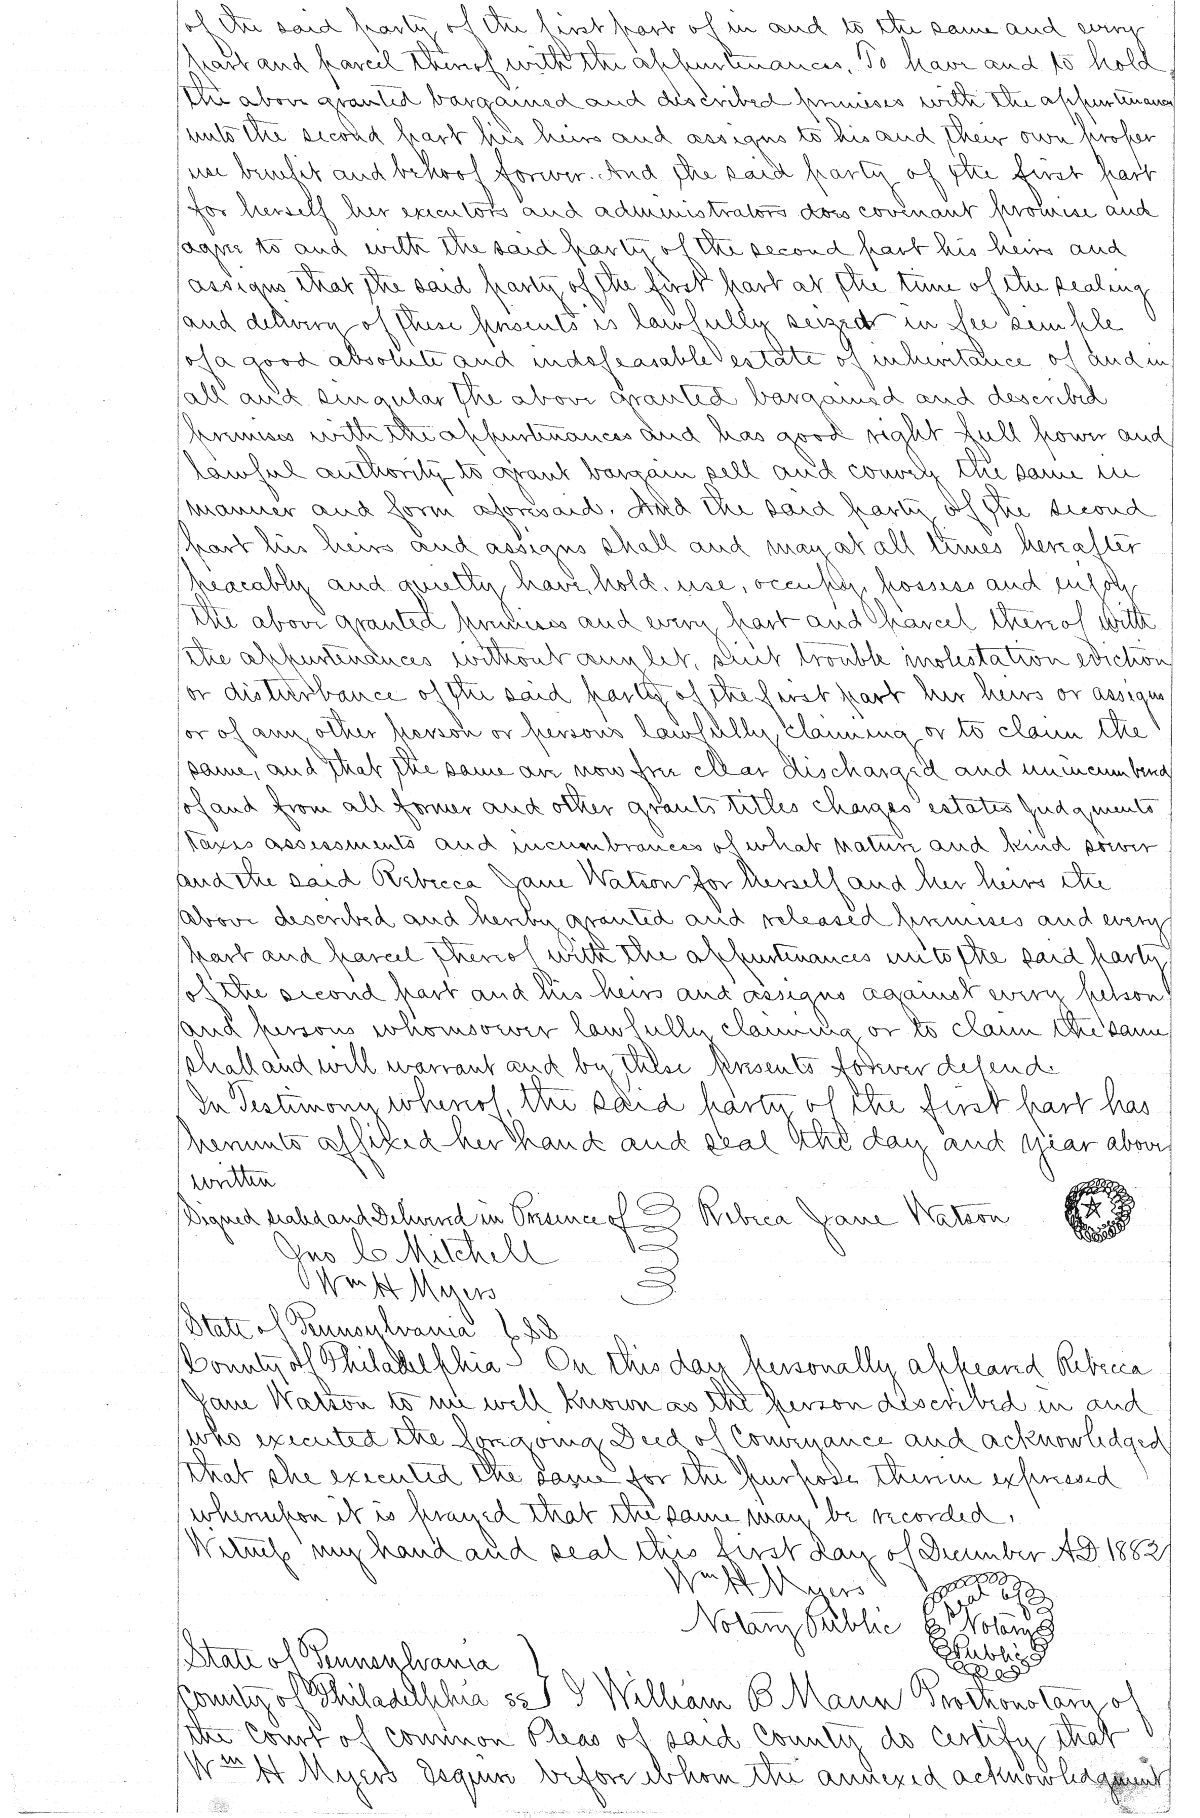 of the said party of the first part of in and to the same and every
part and parcel thereof with the appurtenances. To have and to hold
the above granted bargained and described premises with the appurtenances
unto the second part his heirs and assigns to his and their own proper
use benefit and behoof forever. And the said party of the first part
for herself her executors and administrators does covenant promise and
agree to and with the said party of the second part his heirs and
assigns that the said party of the first part at the time of the sealing
and delivery of these presents is lawfully seized in fee simple
of a good absolute and indefeasable estate of inheritance of and in
all and singular the above granted bargained and described
premises with the appurtenances and has good right full power and
lawful authority to grant bargain sell and convey the same in
manner and form aforesaid. And the said party of the second
part his heirs and assigns shall and may at all times hereafter
peacably and quietly have, hold, use, occupy, possess and enjoy
the above granted premises and every part and parcel thereof with
the appurtenances without any let, suit trouble molestation eviction
or disturbance of the said party of the first part her heirs or assigns
or of any other person or persons lawfully claiming or to claim the
same, and that the same are now free clear discharged and unincumbered
of and from all former and other grants titles charges estates judgments
taxes assessments and incumbrances of what nature and kind soever
and the said Rebecca Jane Watson for herself and her heirs the
above described and hereby granted and released premises and every
part and parcel thereof with the appurtenances unto the said party
of the second part and his heirs and assigns against every person
and persons whomsoever lawfully claiming or to claim the same
shall and will warrant and by these presents forever defend.
In Testimony whereof, the said party of the first part has
herunto affixed her hand and seal the day and year above
written
Signed sealed and Delivered in Presence of Rebeca Jane Watson
Jno C Mitchell
Wm H Myers
State of Pennsylvania } SS
County of Philadelphia } On this day personally appeared Rebecca
Jane Watson to me well known as the person described in and
who executed the foregoing Deed of Conveyance and acknowledged
that she executed the same for the purpose therein expressed
whereupon it is prayed that the same may be recorded.
Witness my hand and seal this first day of December A.D 1882
Wm H Myers
Notary Public
Seal of
Notary
Public
State of Pennsylvania
County of Philadelphia ss } I William B Mann Prothonotary of
the Court of common Pleas of said County do certify that
Wm H Myers Esquire before whom the annexed acknowledgment